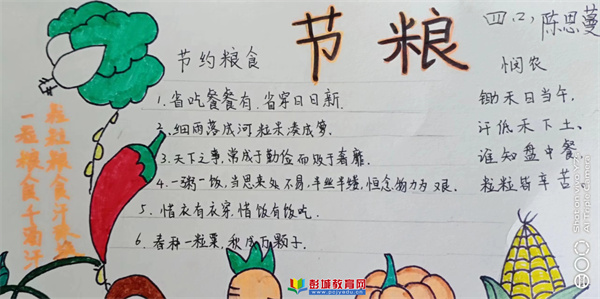 节粮
四(2)陈思蔓
节约粮食
1.省吃餐餐有,省穿日日新.
2.细雨落成河,粒米凑成箩.
3.天下之事,常成于勤俭而败于奢靡.
4.一粥一饭,当思来处不易,半丝半缕,恒念物力为艰.
5.惜衣有衣穿,惜饭有饭吃.
6.春种一粒粟,秋成万颗子.
悯农
锄禾日当午.
汗低禾下土、
谁知盘中餐.
粒粒皆辛苦
粒粒粮食汗
一粒粮食千滴汗
彭城教育网
www.pcjyedu.cn